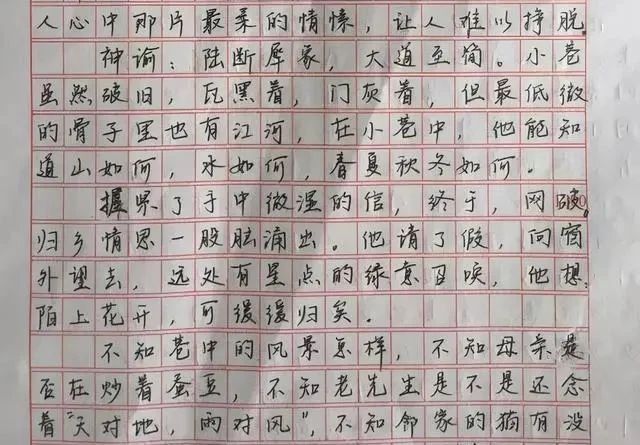 人心中那片最柔的情愫，让人难以挣脱
神谕：陆断犀象，大道至简。小巷
虽然破旧，瓦黑着，门灰着，但最低微
的骨子里也有江河，在小巷中，他能知
道山如何，水如何，春夏秋冬如何。
握紧了手中微湿的信，终于，网破。
归乡情思一股脑涌出。他请了假，向窗
外望去，远处有星点的绿意召唤，他想
陌上花开，可缓缓归矣。
不知巷中的风景怎样，不知母亲是
否在炒着蚕豆，不知老先生是不是还念
着“天对地，雨对风”，不知邻家的猫有没